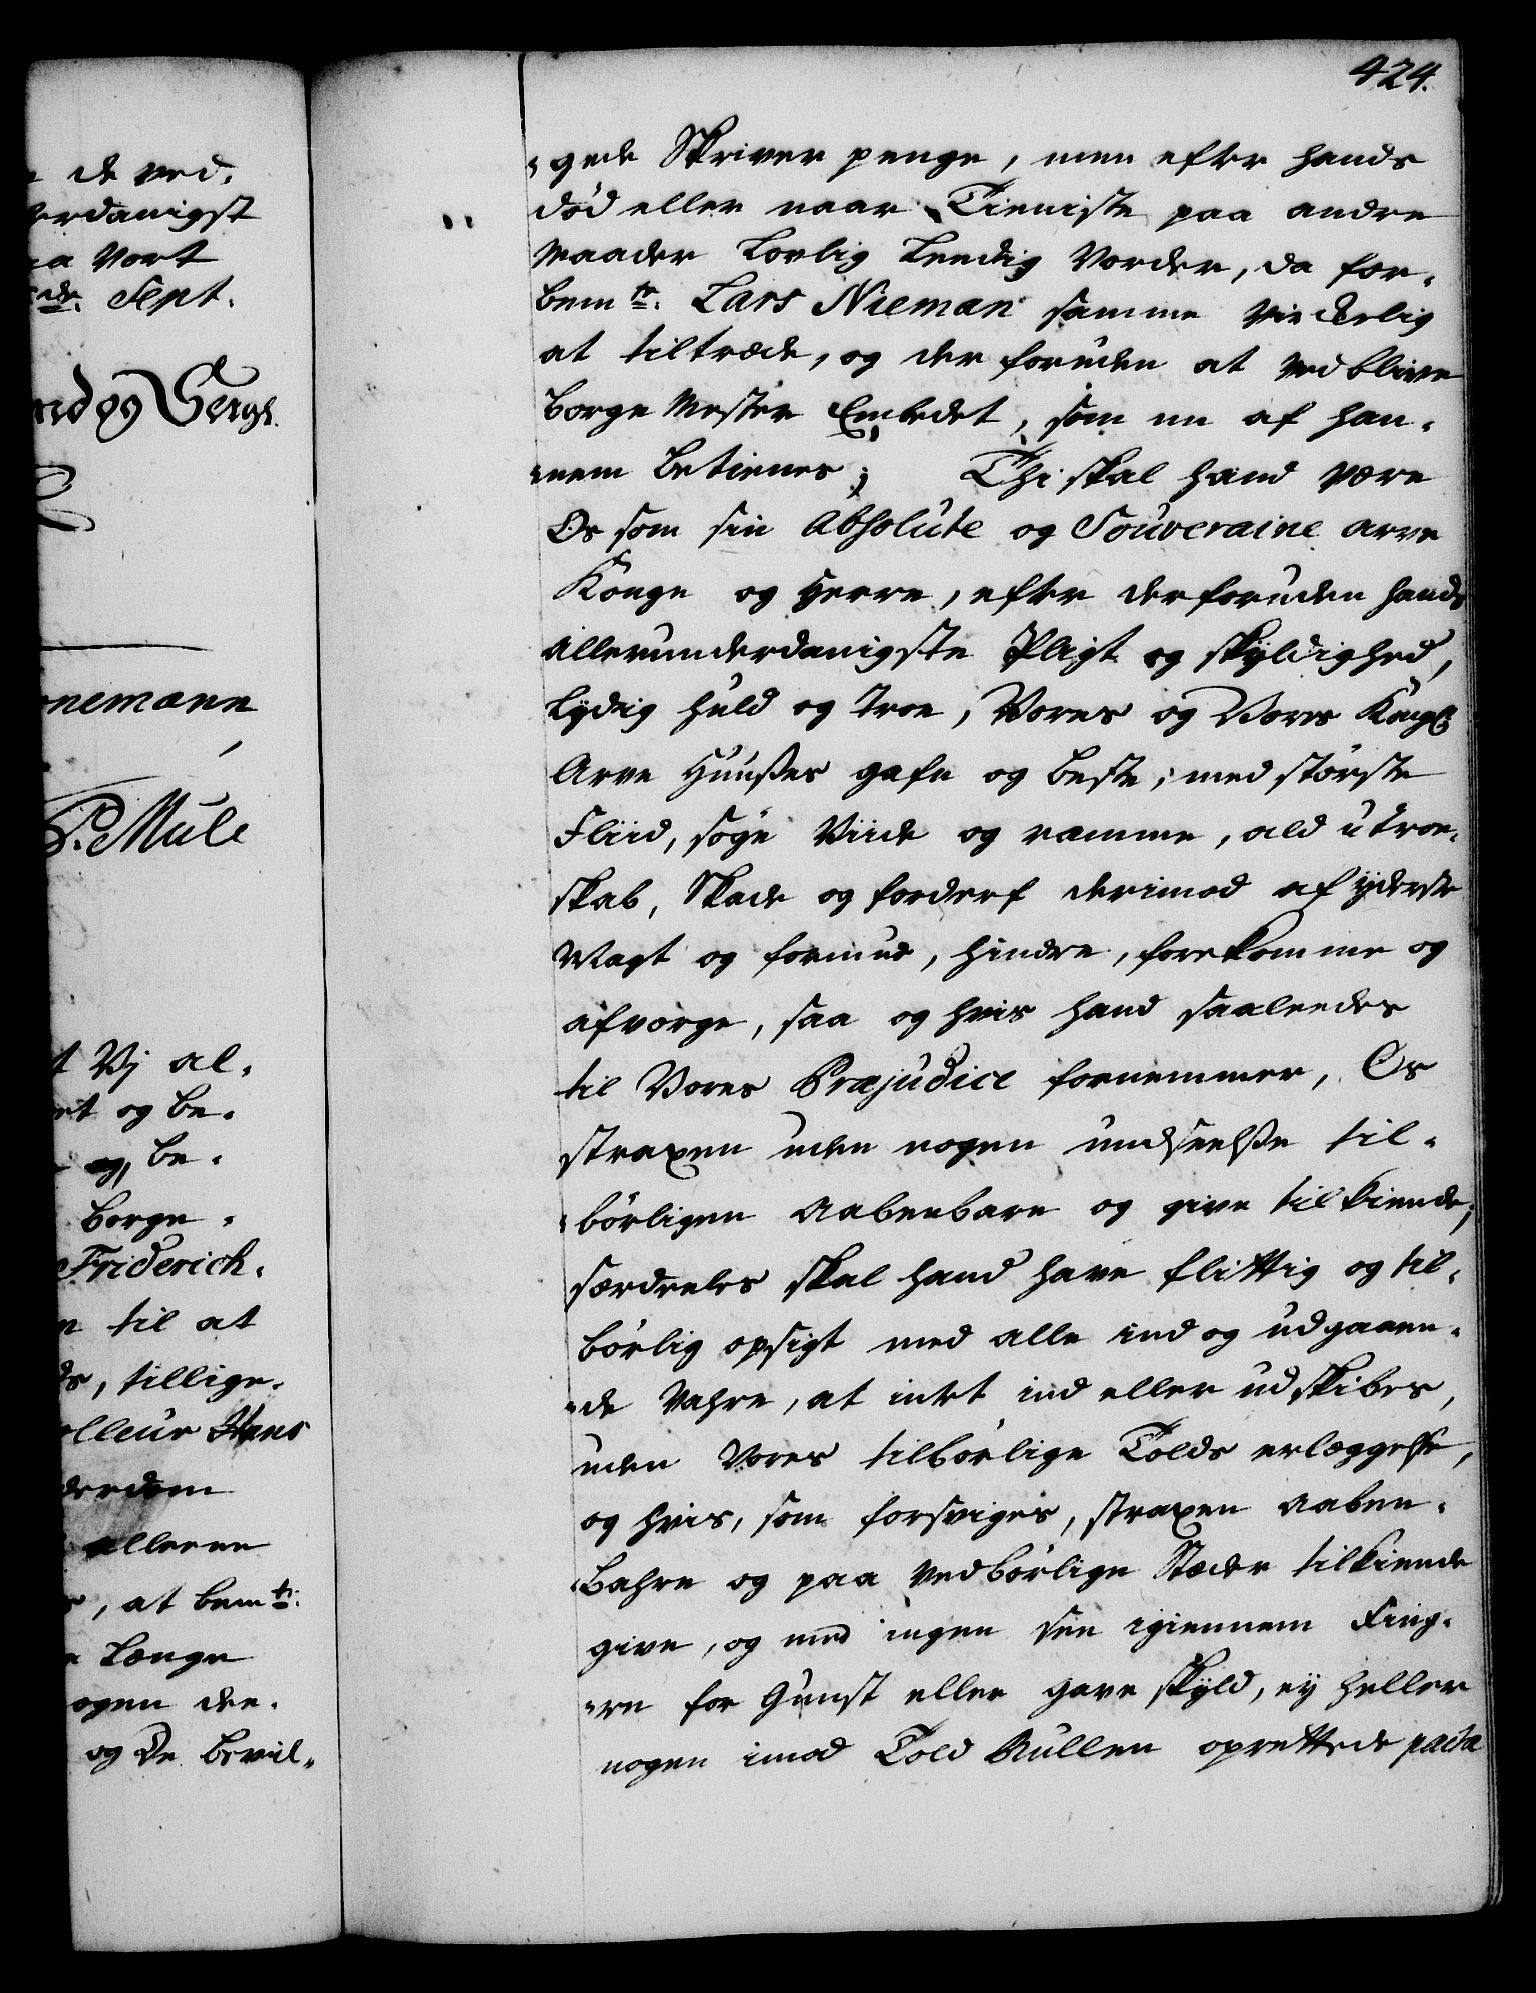 424.
de ved,
erdanigst
Vort
de. Sept.
nd og Berge.
nemann
P. Mule
Vj al,
et og be,
og be,
borge,
Friderich,
til at
, tillige,
olleur Hans
derdom
allerne
, at bemte:
længe
ogen der,
og De bevil,,
,,gede Skriver penge, men efter hands
død eller naar Tieniste paa andre
Maader Lovlig Leedig Vorder, da for,
bemte: Lars Nieman samme Virderlig
at tiltræde, og der foruden at ved blive
Borge Mester Embedet, som nu af han,
,,nem betienes; Thi skal hand være
Os som sin Absolute og Souveraine arve
Konge og Herre, efter derforuden hands
allerunderdanigste Pligt og skÿldighed,
lÿdig huld og troe, Vores og Vores Kongl:
Arve Huußes gafn og beste, med største
Fliid, søge Viide og ramme, ald utroe,
skab, Skade og forderf derimod af ÿderste
Magt og formue, hindre, forekomme og
afverge, saa og hvis hand saaleedes
til Vores Præjudice fornemmer, Os
straxen uden nogen undseelße til,
,,børligen aabenbare og give tilkiende;
særdeeles skal hand have flittig og til,
børlig opsigt med alle ind og udgaaen,
,,de Vahre, at intet ind eller udskibes,
uden Vores tilbørlige Tolds erlæggelße,
og hvis, som forsviges, straxen aaben,
,,bahre og paa Vedbørlige Stæder tilkiende
give, og med ingen see igiennem Fing,
,,re for Gunst eller gave skÿld, eÿ heller
nogen imod Told Rullen oprettede pacta